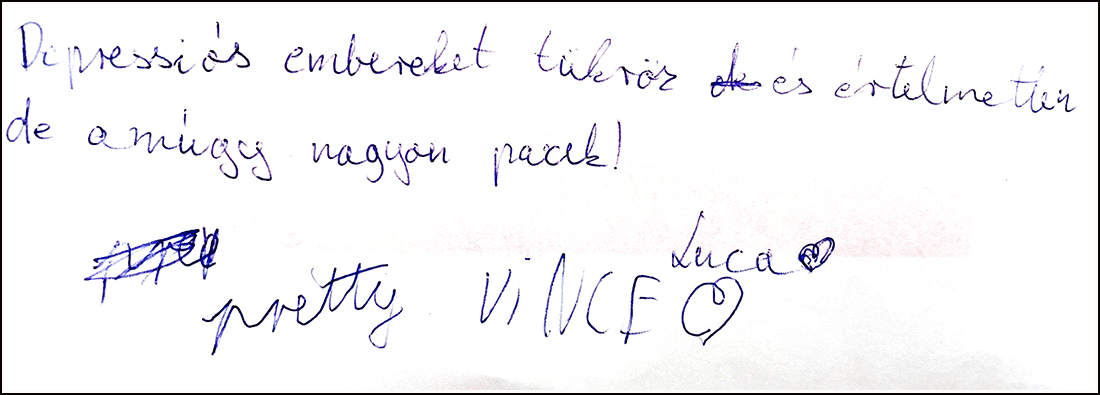 Depressziós embereket tükröz és értelmetlen
de amúgy nagyon pacek!
Luca
pretty VINCE